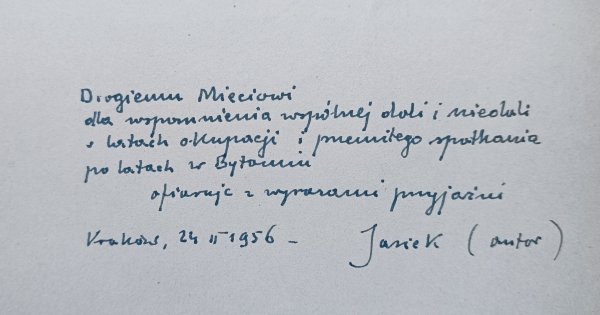 Drogiemu Mieciowi
dla wspomnienia wspólnej doli i niedoli
w latach okupacji i przemiłego spotkania
po latach w Bytomiu
ofiaruję z wyrazami przyjaźni
Kraków, 24 II 1956 -
Jasiek (autor)